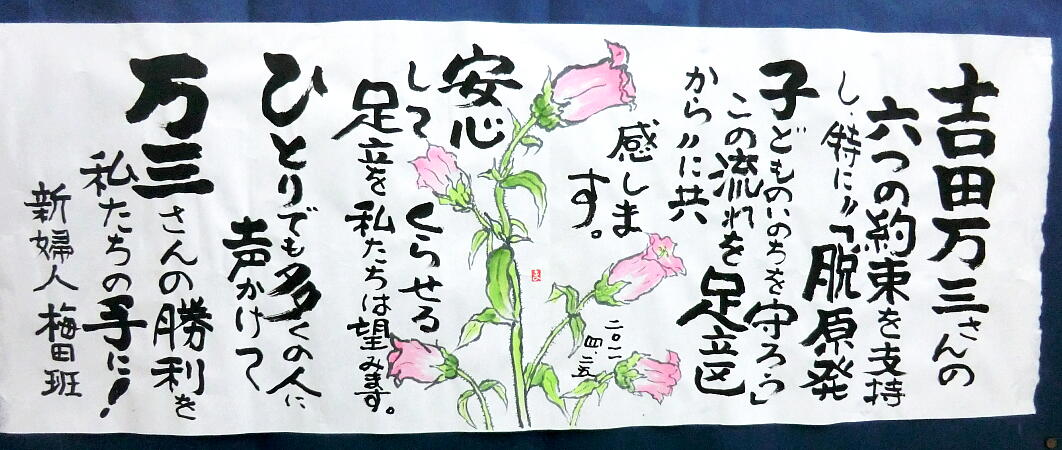 吉田万三さんの
六つの約束を支持
し、特に〃「脱原発
子どものいのちを守ろう」
この流れを足立区
から〃に共
感しま
す。
二〇一一
四.二五
安心
して くらせる
足立を私たちは望みます。
ひとりでも多くの人に
声かけて
万三さんの勝利を
私たちの手に!
新婦人 梅田班